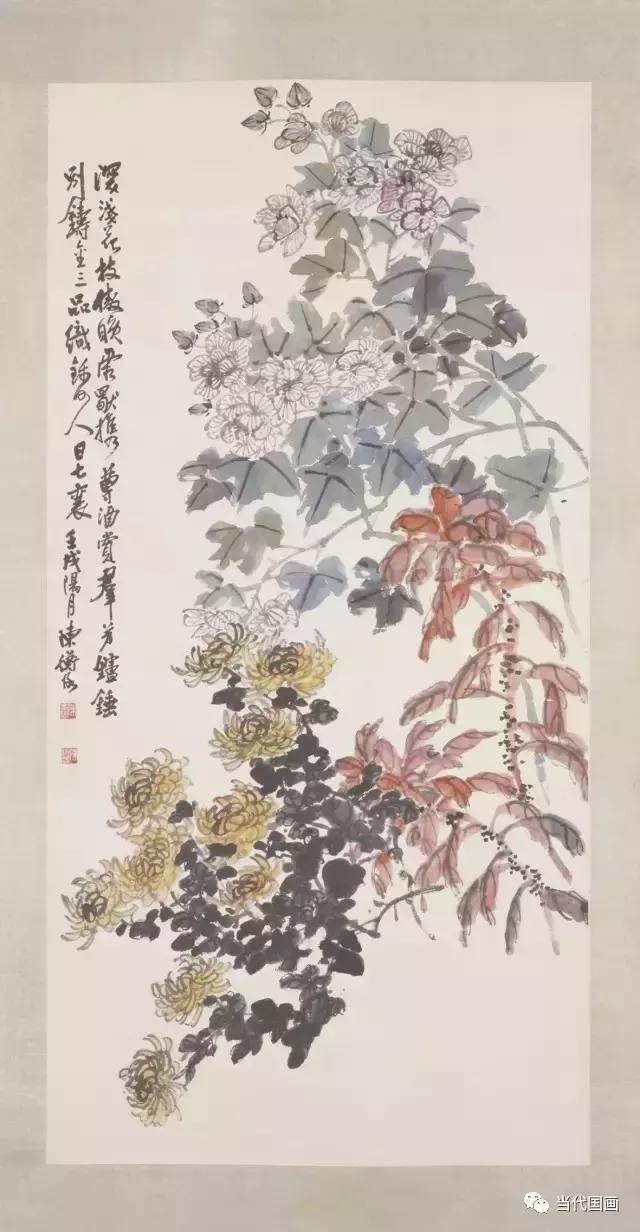 深淺花枝傲晚霜歡攜尊酒賞羣芳鑪錘
別鑄金三品織錦何人日七襄 壬戌陽月陳衡恪
当代国画